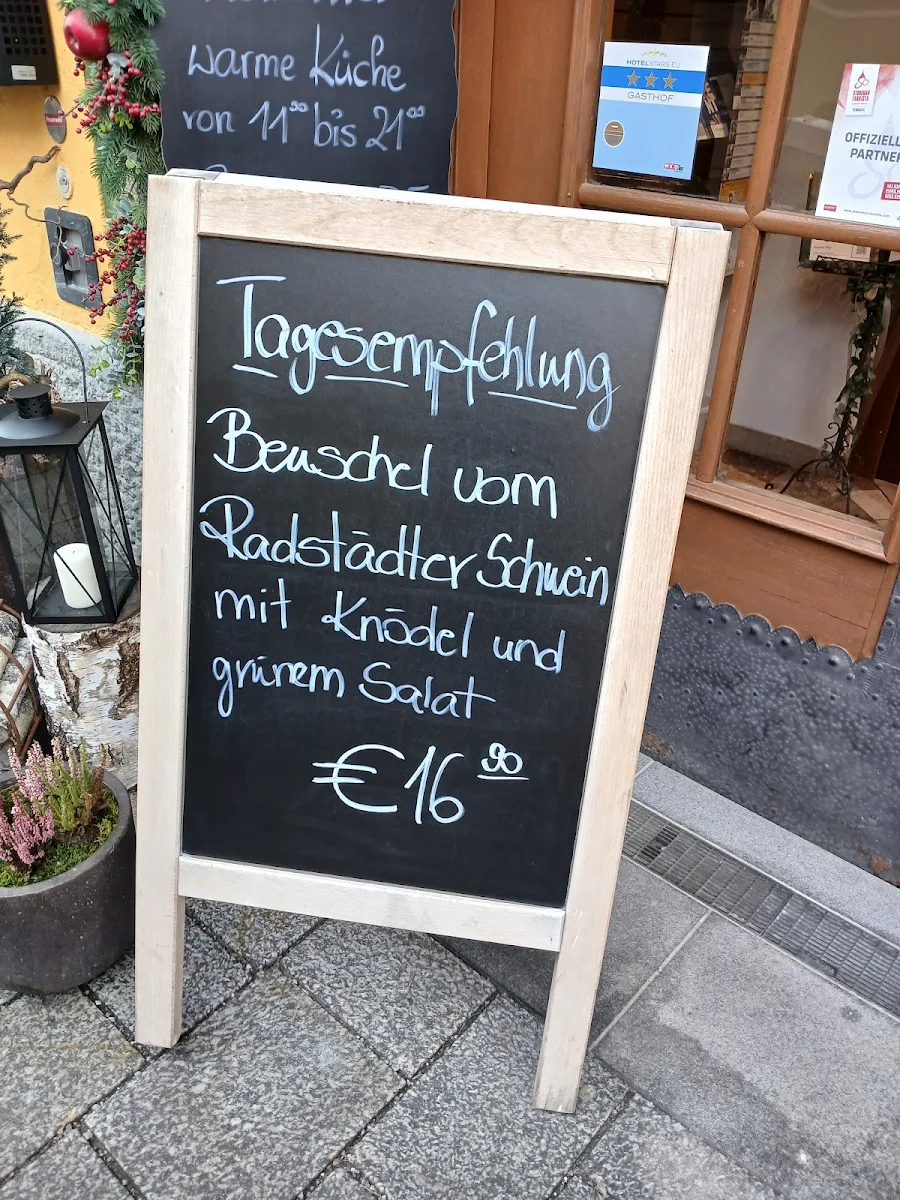 warme Küche
von 11⁰⁰ bis 21⁰⁰
HOTELSTARS.EU
GASTHOF
OFFIZIELL
PARTNER
Tagesempfehlung
Beuschel vom
Radstädter Schwein
mit Knödel und
grünem Salat
€ 16 90